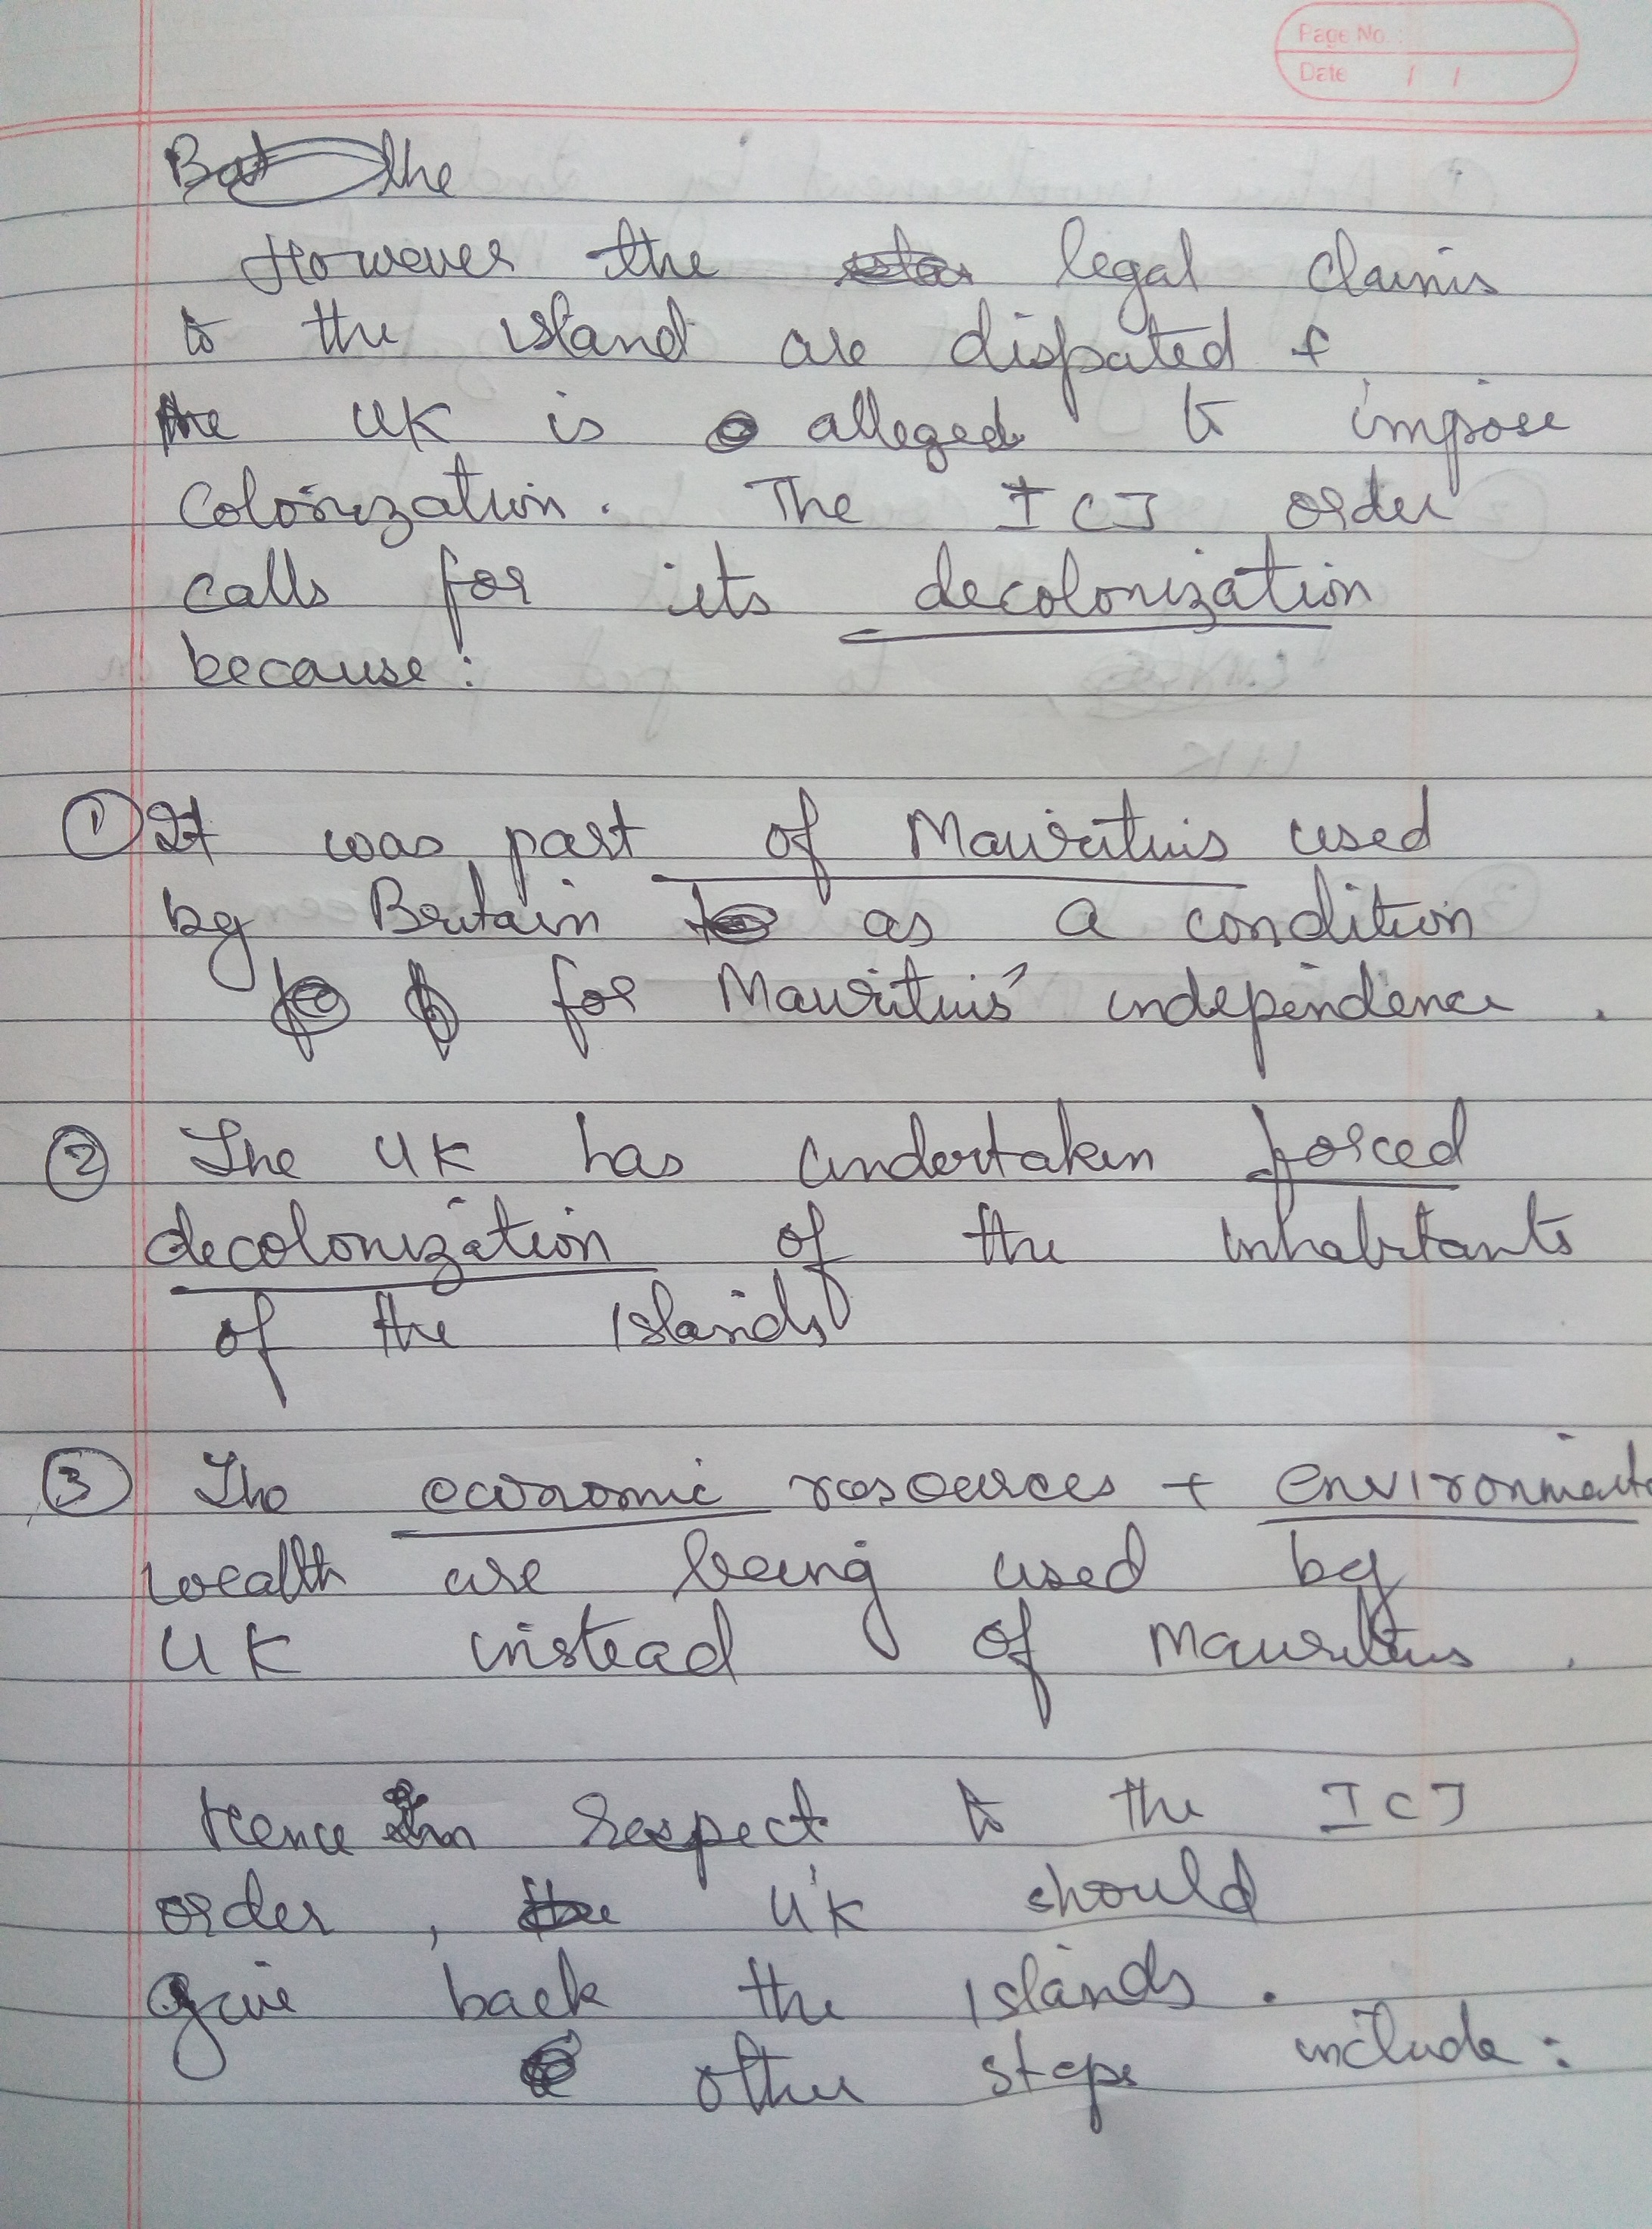 Page No.
Date / /
But the
However the legal claims
to the island are disputed +
the UK is alleged to impose
Colonization. The ICJ order
calls for its decolonization
because:
① It was part of Mauritius used
by Britain as a condition
for Mauritius' independence.
② The UK has undertaken forced
decolonization of the inhabitants
of the Islands
③ The economic resources + environmental
wealth are being used by
UK instead of Mauritius.
Hence in respect to the ICJ
order, UK should
give back the Islands.
other steps include: